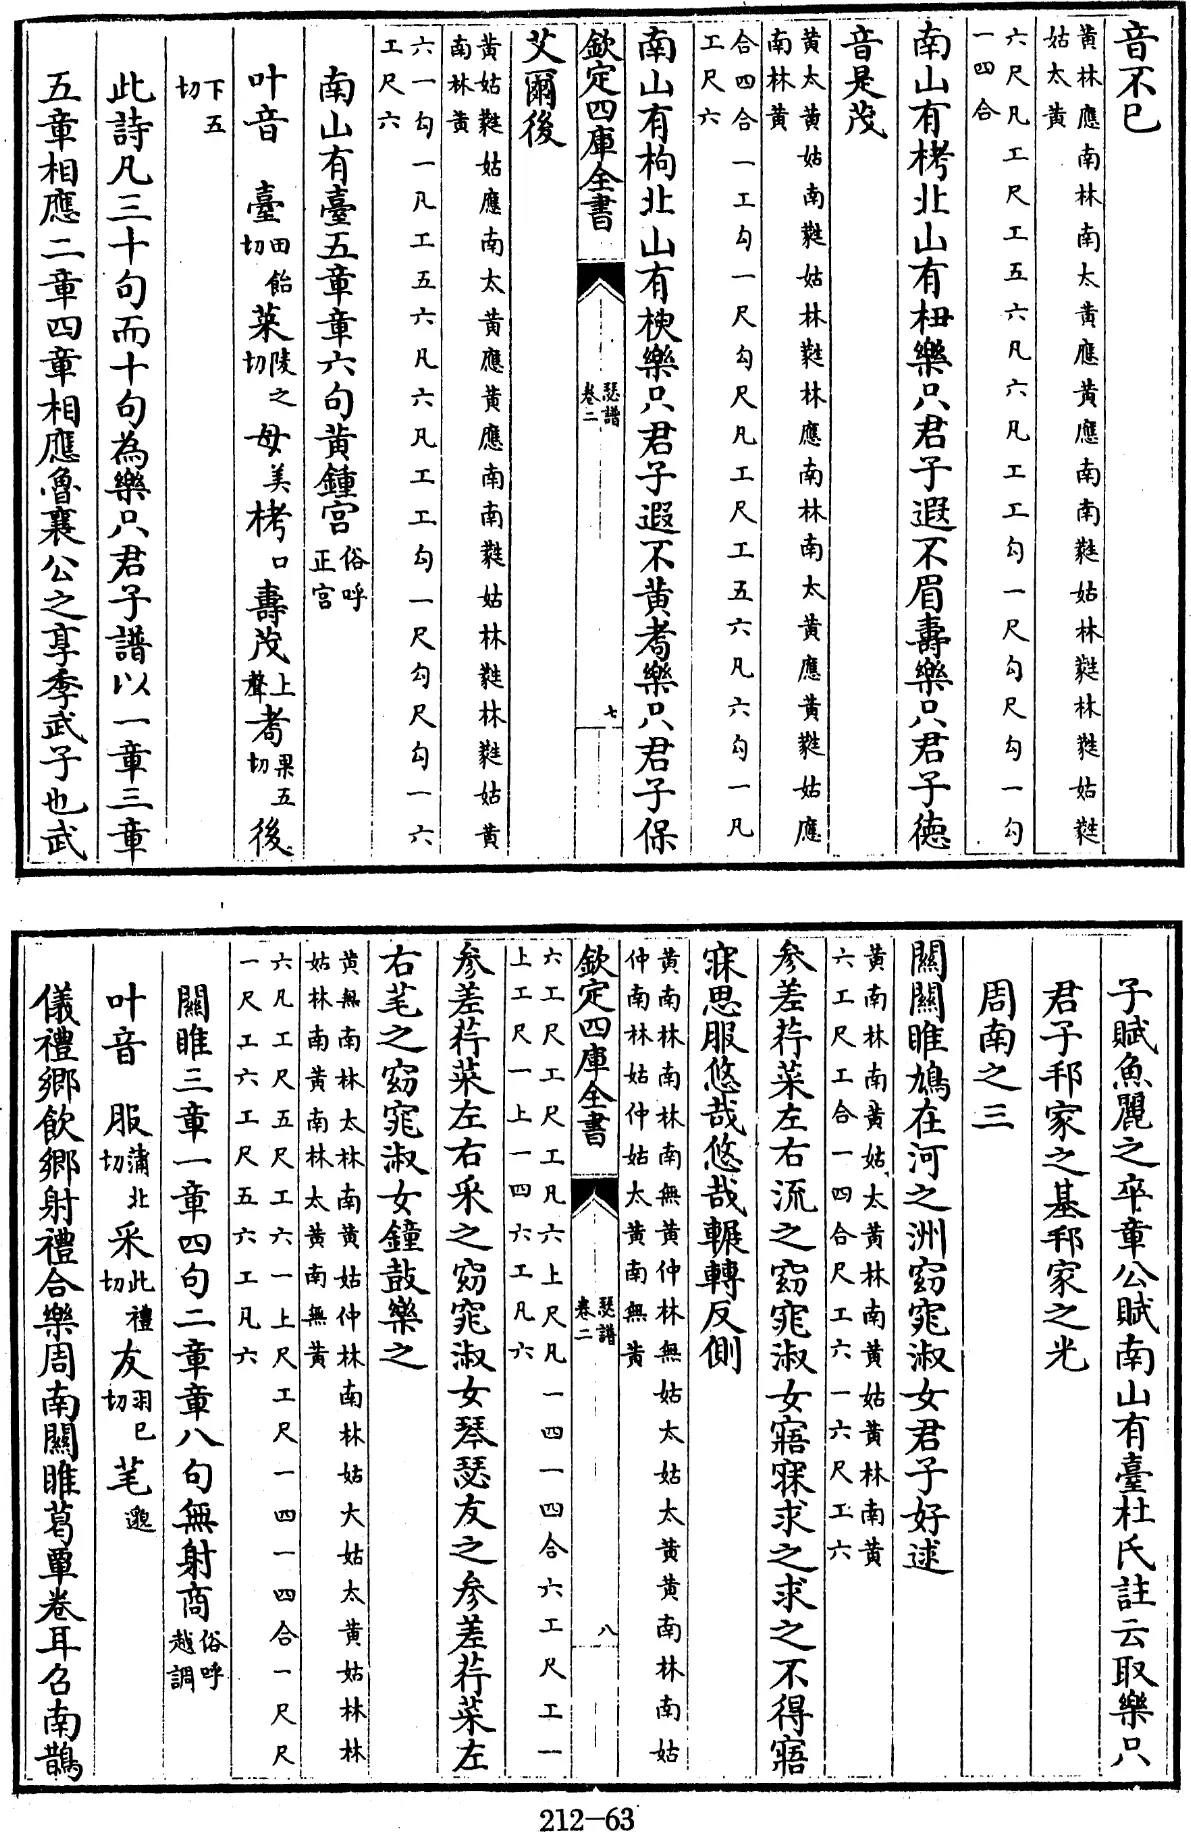 音不已
黄林應南林南太黄應黄應南南蕤姑林蕤林蕤姑蕤
姑太黄
六尺凡工尺工五六凡六凡工工勾一尺勾尺勾一勾
一四合
南山有栲北山有杻樂只君子遐不眉壽樂只君子徳
音是茂
黄太黄姑南蕤姑林蕤林應南林南太黄應黄蕤姑應
南林黄
合四合一工勾一尺勾尺凡工尺工五六凡六勾一凡
工尺六
南山有枸北山有楰樂只君子遐不黄耇樂只君子保
欽定四庫全書 瑟譜 卷二 七
艾爾後
黄姑蕤姑應南太黄應黄應南南蕤姑林蕤林蕤姑黄
南林黄
六一勾一凡工五六凡六凡工工勾一尺勾尺勾一六
工尺六
南山有臺五章章六句黄鍾宫俗呼正宫
叶音 臺田飴切萊陵之切母美栲口壽茂上聲耇果五切後
下五切
此詩凡三十句而十句為樂只君子譜以一章三章
五章相應二章四章相應魯襄公之享季武子也武
子賦魚麗之卒章公賦南山有臺杜氏註云取樂只
君子邦家之基邦家之光
周南之三
關關雎鳩在河之洲窈窕淑女君子好逑
黄南林南黄姑太黄林南黄姑黄林南黄
六工尺工合一四合尺工六一六尺工六
參差荇菜左右流之窈窕淑女寤寐求之求之不得寤
寐思服悠哉悠哉輾轉反側
黄南林南林南無黄仲林無姑太姑太黄黄南林南姑
仲南林姑仲姑太黄南無黄
欽定四庫全書 瑟譜 卷二 八
六工尺工尺工凡六上尺凡一四一四合六工尺工一
上工尺一上一四六工凡六
參差荇菜左右采之窈窕淑女琴瑟友之參差荇菜左
右芼之窈窕淑女鐘鼓樂之
黄無南林太林南黄姑仲林南林姑大姑太黄姑林林
姑林南黄南林太黄南無黄
六凡工尺五尺工六一上尺工尺一四一四合一尺尺
一尺工六工尺五六工凡六
關雎三章一章四句二章章八句無射商俗呼越調
叶音 服蒲北切采此禮切友羽已切芼邈
儀禮鄉飲鄉射禮合樂周南關雎葛覃卷耳召南鵲
212-63